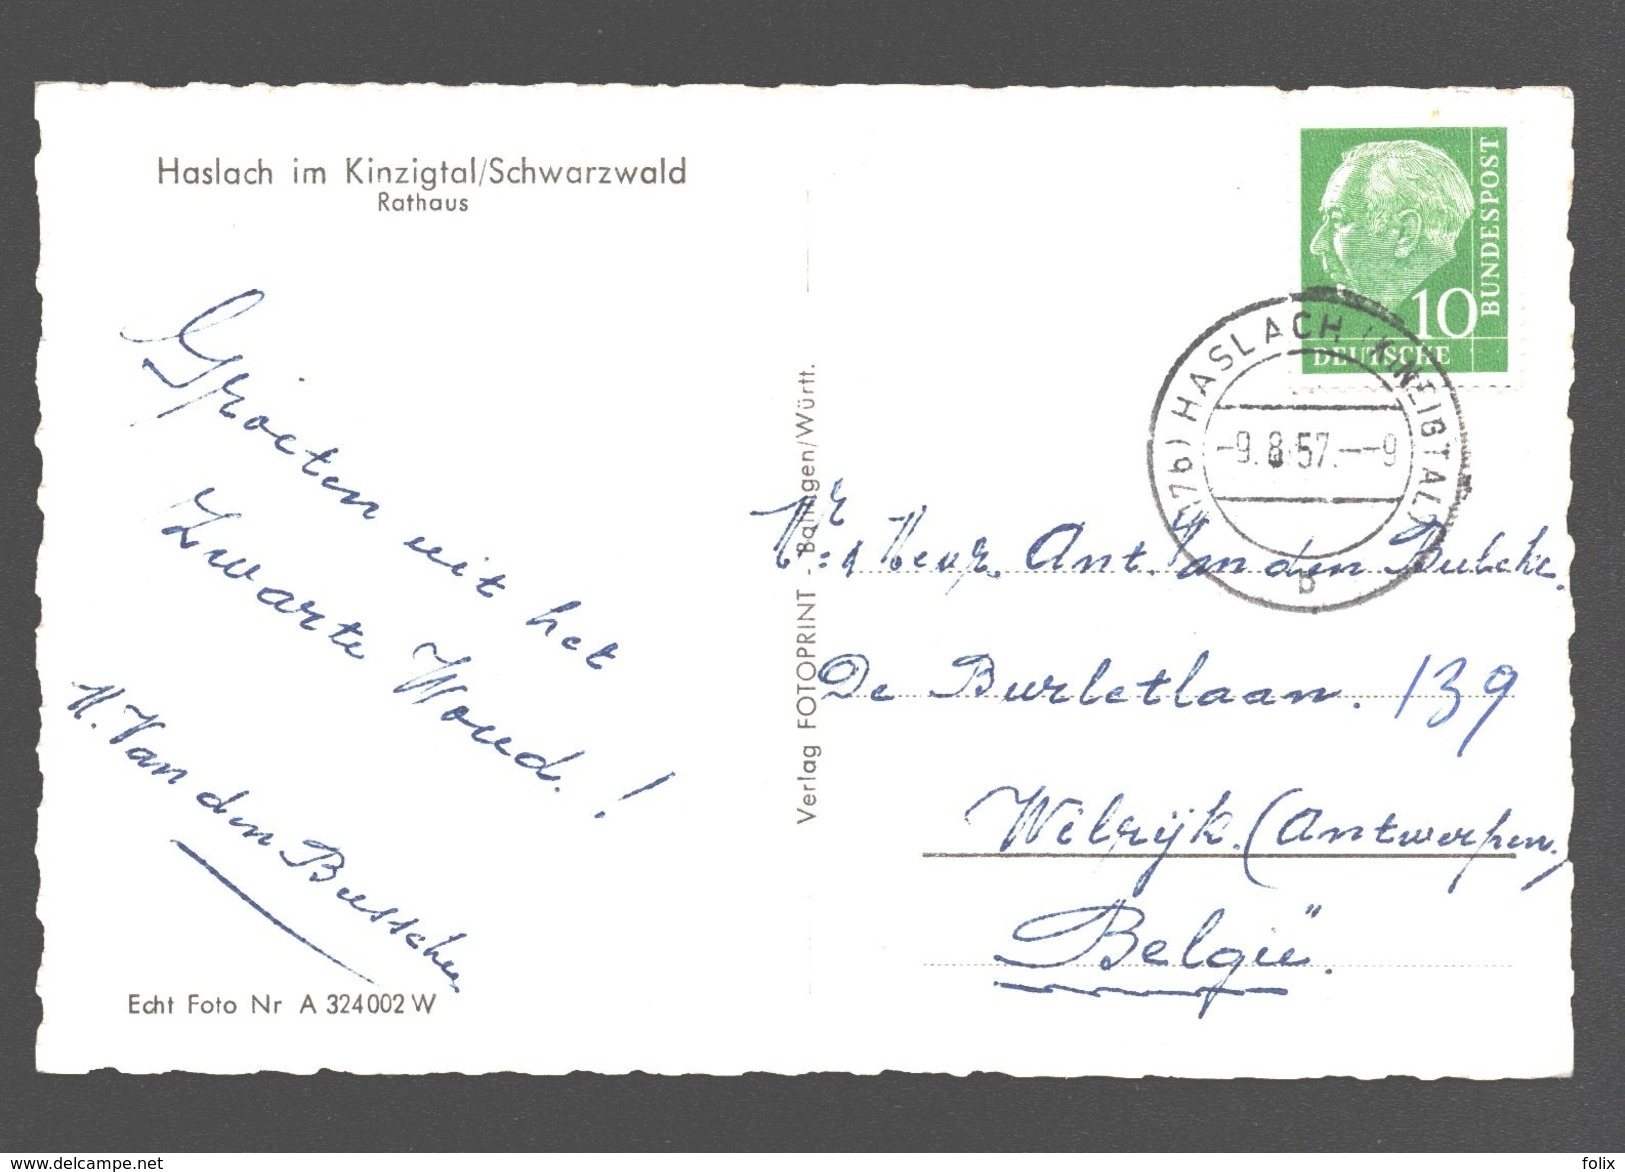 Haslach im Kinzigtal/Schwarzwald
Rathaus
Groeten uit het
Zwarte Woud.!
H. Van den Bussche
Echt Foto Nr A 324002 W
Verlag FOTOPRINT - Balingen/Württ.
BUNDESPOST
10
DEUTSCHE
(17b) HASLACH (KINZIGTAL)
-9.8.57.--9
b
Mr & Mevr. Ant. Van den Bulcke.
De Burletlaan. 139
Wilrijk. (Antwerpen.)
België.
delcampe.net
folix